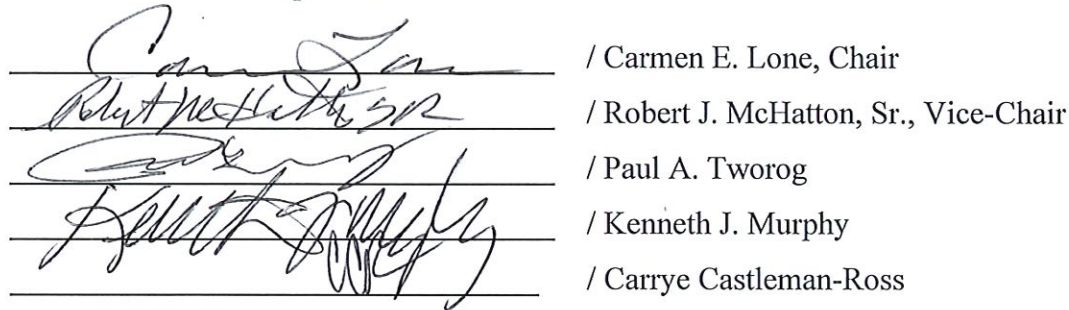 Carmen Lone / Carmen E. Lone, Chair
Robert McHatton SR / Robert J. McHatton, Sr., Vice-Chair
/ Paul A. Tworog
Kenneth J Murphy / Kenneth J. Murphy
/ Carrye Castleman-Ross